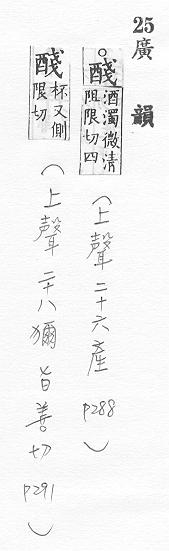 25廣韻
○醆酒濁微清阻限切四(上聲二十六產 P288)
醆杯又側限切(上聲二十八獮 旨善切 P291)